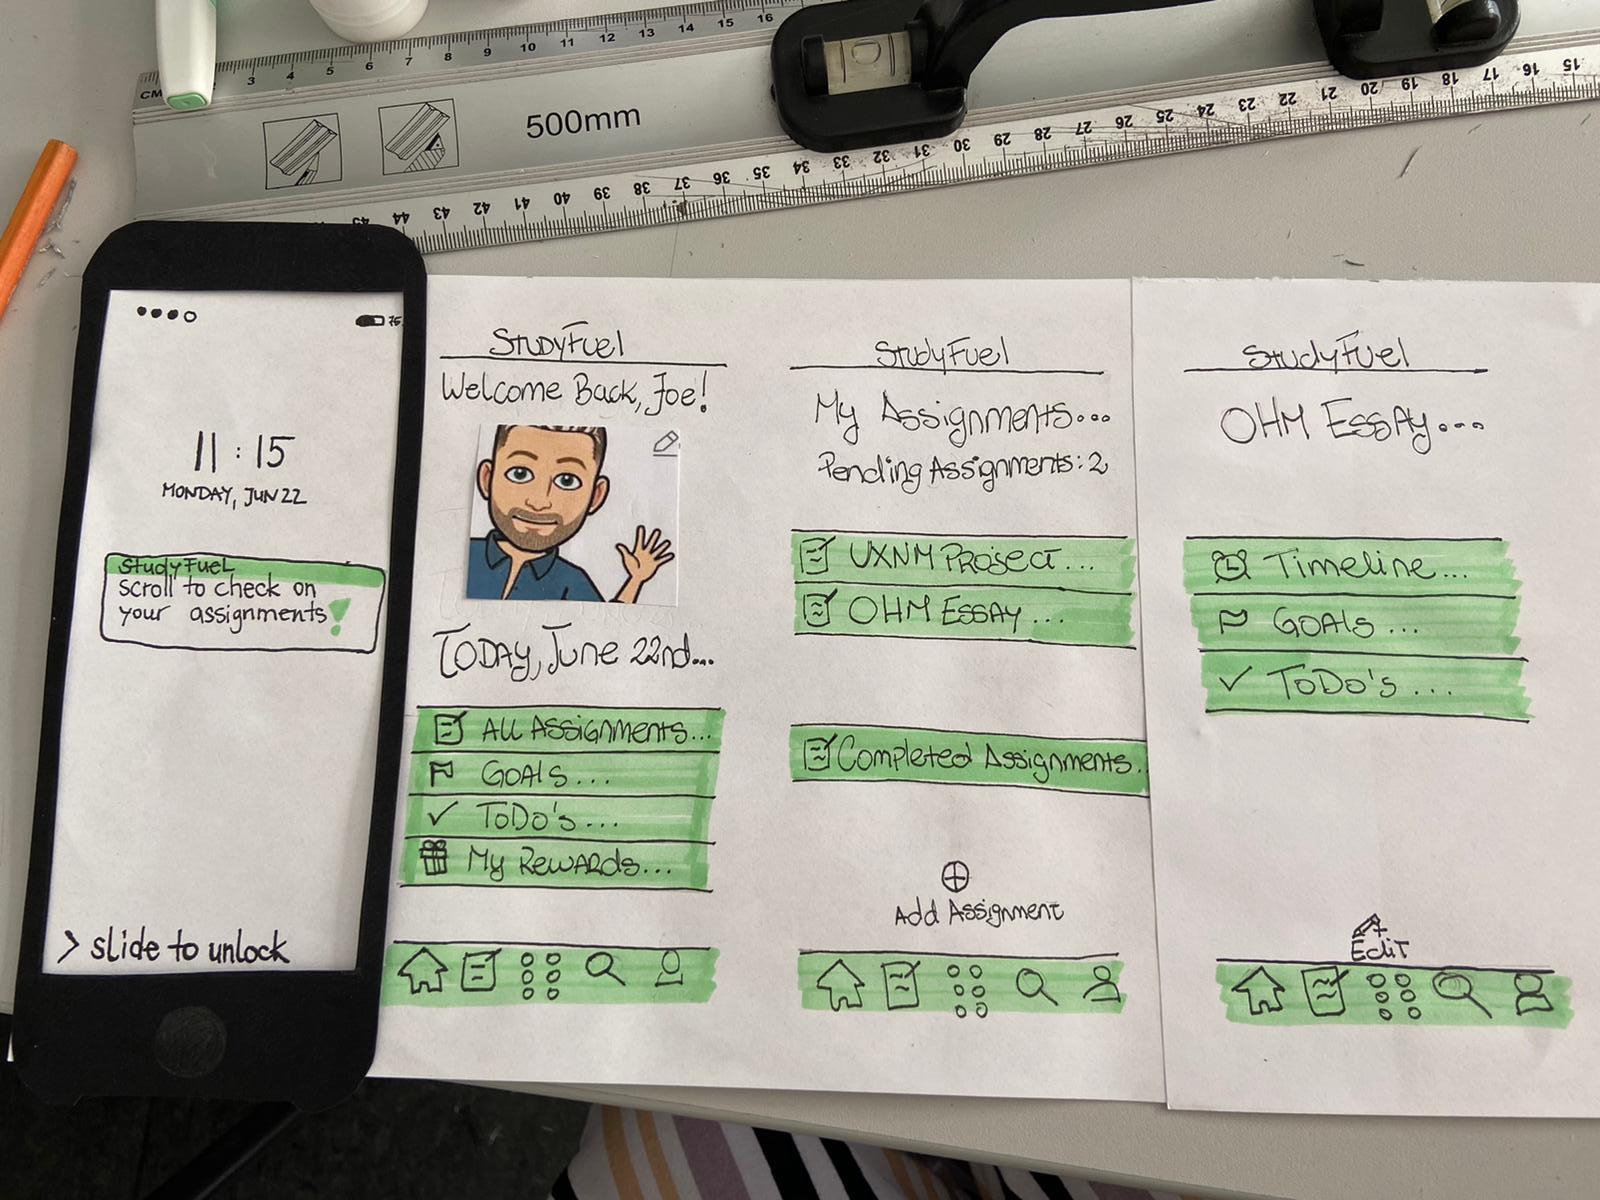 CM 3 4 5 6 7 8 9 10 11 12 13 14 15 16
500mm
44 43 42 41 40 39 38 37 36 35 34 33 32 31 30 29 28 27 26 25 24 23 22 21 20 19 18 17 16 15
11:15
MONDAY, JUN 22
StudyFuel
Scroll to check on
your assignments!
> slide to unlock
StudyFuel
Welcome Back, Joe!
Today, June 22nd...
All Assignments...
Goals...
ToDo's...
My Rewards...
StudyFuel
My Assignments...
Pending Assignments: 2
UXNM Project...
OHM Essay...
Completed Assignments.
Add Assignment
StudyFuel
OHM Essay...
Timeline...
Goals...
ToDo's...
Edit